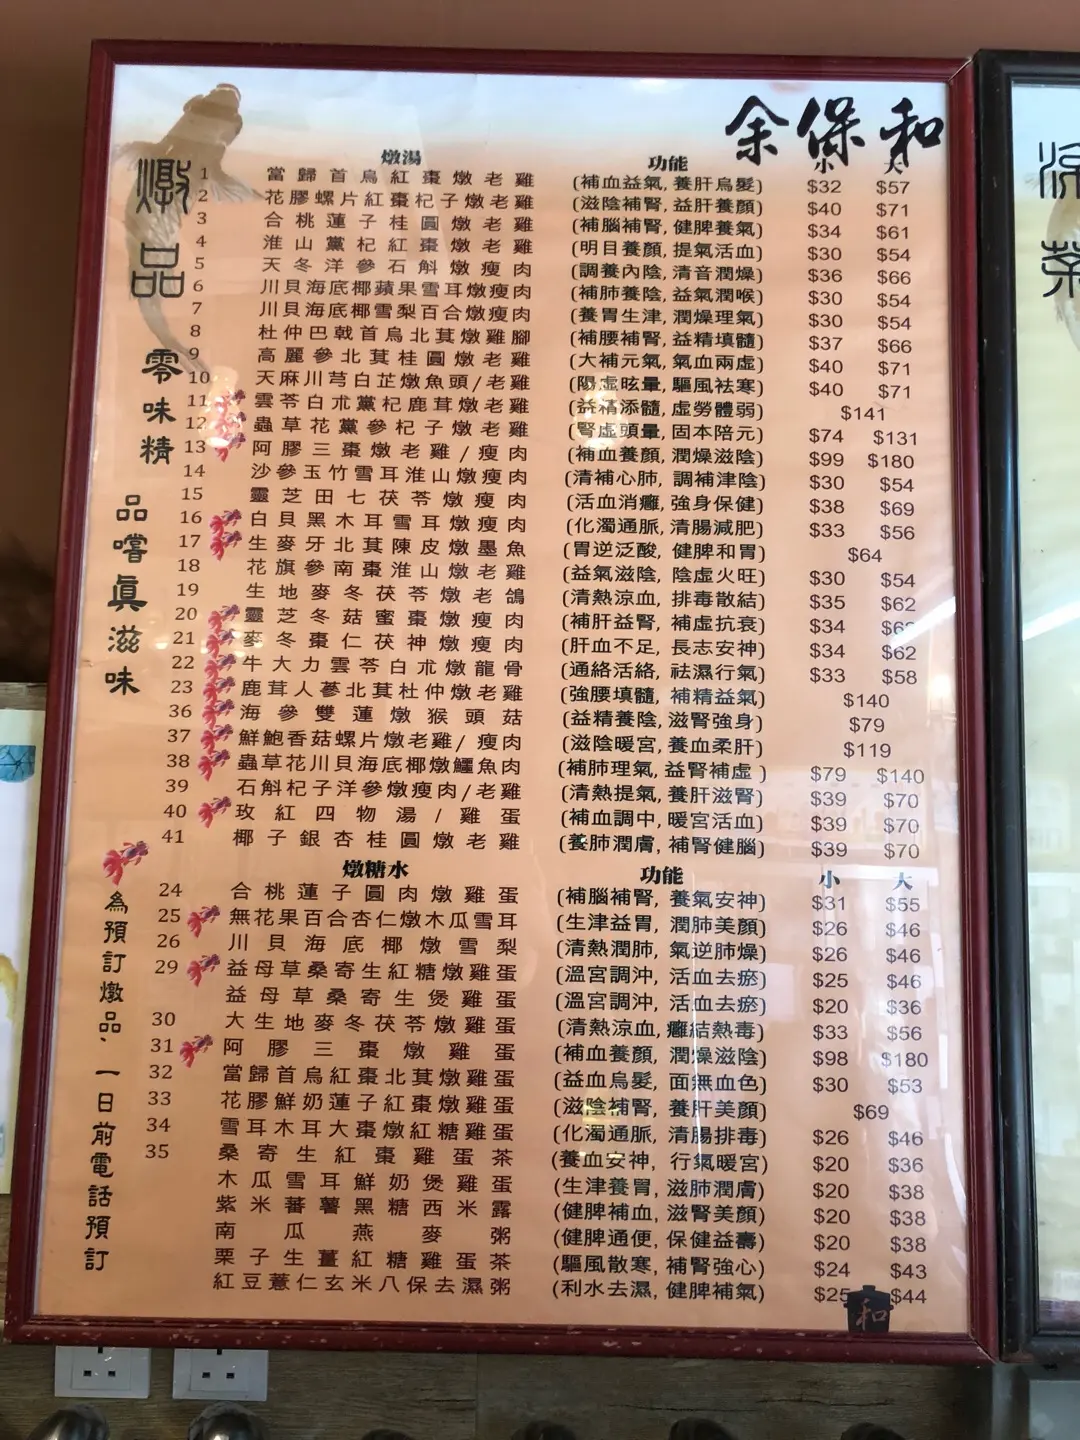 余保和
燉品
零味精
品嚐真滋味
為預訂燉品、一日前電話預訂
燉湯 功能 小 大
1 當歸首烏紅棗燉老雞 (補血益氣,養肝烏髮) $32 $57
2 花膠螺片紅棗杞子燉老雞 (滋陰補腎,益肝養顏) $40 $71
3 合桃蓮子桂圓燉老雞 (補腦補腎,健脾養氣) $34 $61
4 淮山黨杞紅棗燉老雞 (明目養顏,提氣活血) $30 $54
5 天冬洋參石斛燉瘦肉 (調養內陰,清音潤燥) $36 $66
6 川貝海底椰蘋果雪耳燉瘦肉 (補肺養陰,益氣潤喉) $30 $54
7 川貝海底椰雪梨百合燉瘦肉 (養胃生津,潤燥理氣) $30 $54
8 杜仲巴戟首烏北萁燉雞腳 (補腰補腎,益精填髓) $37 $66
9 高麗參北萁桂圓燉老雞 (大補元氣,氣血兩虛) $40 $71
10 天麻川芎白芷燉魚頭/老雞 (陽虛眩暈,驅風袪寒) $40 $71
11 雲苓白朮黨杞鹿茸燉老雞 (益精添髓,虛勞體弱) $141
12 蟲草花黨參杞子燉老雞 (腎虛頭暈,固本陪元) $74 $131
13 阿膠三棗燉老雞/瘦肉 (補血養顏,潤燥滋陰) $99 $180
14 沙參玉竹雪耳淮山燉瘦肉 (清補心肺,調補津陰) $30 $54
15 靈芝田七茯苓燉瘦肉 (活血消癰,強身保健) $38 $69
16 白貝黑木耳雪耳燉瘦肉 (化濁通脈,清腸減肥) $33 $56
17 生麥牙北萁陳皮燉墨魚 (胃逆泛酸,健脾和胃) $64
18 花旗參南棗淮山燉老雞 (益氣滋陰,陰虛火旺) $30 $54
19 生地麥冬茯苓燉老鴿 (清熱涼血,排毒散結) $35 $62
20 靈芝冬菇蜜棗燉瘦肉 (補肝益腎,補虛抗衰) $34
21 麥冬棗仁茯神燉瘦肉 (肝血不足,長志安神) $34 $62
22 牛大力雲苓白朮燉龍骨 (通絡活絡,祛濕行氣) $33 $58
23 鹿茸人蔘北萁杜仲燉老雞 (強腰填髓,補精益氣) $140
36 海參雙蓮燉猴頭菇 (益精養陰,滋腎強身) $79
37 鮮鮑香菇螺片燉老雞/瘦肉 (滋陰暖宮,養血柔肝) $119
38 蟲草花川貝海底椰燉鱷魚肉 (補肺理氣,益腎補虛) $79 $140
39 石斛杞子洋參燉瘦肉/老雞 (清熱提氣,養肝滋腎) $39 $70
40 玫紅四物湯/雞蛋 (補血調中,暖宮活血) $39 $70
41 椰子銀杏桂圓燉老雞 (養肺潤膚,補腎健腦) $39 $70
燉糖水 功能 小 大
24 合桃蓮子圓肉燉雞蛋 (補腦補腎,養氣安神) $31 $55
25 無花果百合杏仁燉木瓜雪耳 (生津益胃,潤肺美顏) $26 $46
26 川貝海底椰燉雪梨 (清熱潤肺,氣逆肺燥) $26 $46
29 益母草桑寄生紅糖燉雞蛋 (溫宮調沖,活血去瘀) $25 $46
益母草桑寄生煲雞蛋 (溫宮調沖,活血去瘀) $20 $36
30 大生地麥冬茯苓燉雞蛋 (清熱涼血,癰結熱毒) $33 $56
31 阿膠三棗燉雞蛋 (補血養顏,潤燥滋陰) $98 $180
32 當歸首烏紅棗北萁燉雞蛋 (益血烏髮,面無血色) $30 $53
33 花膠鮮奶蓮子紅棗燉雞蛋 (滋陰補腎,養肝美顏) $69
34 雪耳木耳大棗燉紅糖雞蛋 (化濁通脈,清腸排毒) $26 $46
35 桑寄生紅棗雞蛋茶 (養血安神,行氣暖宮) $20 $36
木瓜雪耳鮮奶煲雞蛋 (生津養胃,滋肺潤膚) $20 $38
紫米蕃薯黑糖西米露 (健脾補血,滋腎美顏) $20 $38
南瓜燕麥粥 (健脾通便,保健益壽) $20 $38
栗子生薑紅糖雞蛋茶 (驅風散寒,補腎強心) $24 $43
紅豆薏仁玄米八保去濕粥 (利水去濕,健脾補氣) $25 $44
和